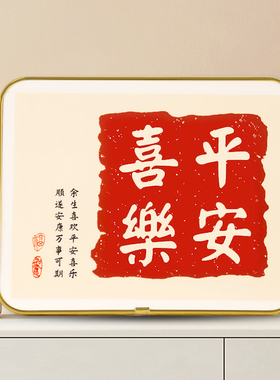 平安
喜樂
余生喜欢平安喜乐
顺遂安康万事可期